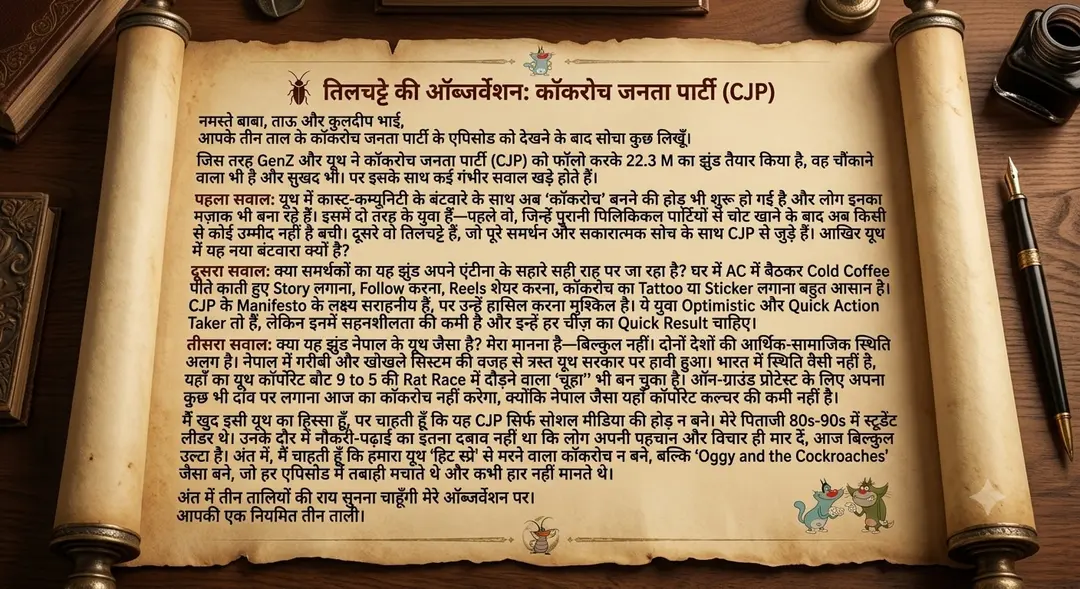 तिलचट्टे की ऑब्जर्वेशन: कॉकरोच जनता पार्टी (CJP)
नमस्ते बाबा, ताऊ और कुलदीप भाई,
आपके तीन ताल के कॉकरोच जनता पार्टी के एपिसोड को देखने के बाद सोचा कुछ लिखूँ।
जिस तरह GenZ और यूथ ने कॉकरोच जनता पार्टी (CJP) को फॉलो करके 22.3 M का झुंड तैयार किया है, वह चौंकाने
वाला भी है और सुखद भी। पर इसके साथ कई गंभीर सवाल खड़े होते हैं।
पहला सवाल: यूथ में कास्ट-कम्युनिटी के बंटवारे के साथ अब 'कॉकरोच' बनने की होड़ भी शुरू हो गई है और लोग इनका
मज़ाक भी बना रहे हैं। इसमें दो तरह के युवा हैं—पहले वो, जिन्हें पुरानी पिलिकिकल पार्टियों से चोट खाने के बाद अब किसी
से कोई उम्मीद नहीं है बची। दूसरे वो तिलचट्टे हैं, जो पूरे समर्थन और सकारात्मक सोच के साथ CJP से जुड़े हैं। आखिर यूथ
में यह नया बंटवारा क्यों है?
दूसरा सवाल: क्या समर्थकों का यह झुंड अपने एंटीना के सहारे सही राह पर जा रहा है? घर में AC में बैठकर Cold Coffee
पीते काती हुए Story लगाना, Follow करना, Reels शेयर करना, कॉकरोच का Tattoo या Sticker लगाना बहुत आसान है।
CJP के Manifesto के लक्ष्य सराहनीय हैं, पर उन्हें हासिल करना मुश्किल है। ये युवा Optimistic और Quick Action
Taker तो हैं, लेकिन इनमें सहनशीलता की कमी है और इन्हें हर चीज़ का Quick Result चाहिए।
तीसरा सवाल: क्या यह झुंड नेपाल के यूथ जैसा है? मेरा मानना है—बिल्कुल नहीं। दोनों देशों की आर्थिक-सामाजिक स्थिति
अलग है। नेपाल में गरीबी और खोखले सिस्टम की वजह से त्रस्त यूथ सरकार पर हावी हुआ। भारत में स्थिति वैसी नहीं है,
यहाँ का यूथ कॉर्पोरेट बौट 9 to 5 की Rat Race में दौड़ने वाला 'चूहा'' भी बन चुका है। ऑन-ग्राउंड प्रोटेस्ट के लिए अपना
कुछ भी दांव पर लगाना आज का कॉकरोच नहीं करेगा, क्योंकि नेपाल जैसा यहाँ कॉर्पोरेट कल्चर की कमी नहीं है।
मैं खुद इसी यूथ का हिस्सा हूँ, पर चाहती हूँ कि यह CJP सिर्फ सोशल मीडिया की होड़ न बने। मेरे पिताजी 80s-90s में स्टूडेंट
लीडर थे। उनके दौर में नौकरी-पढ़ाई का इतना दबाव नहीं था कि लोग अपनी पहचान और विचार ही मार दें, आज बिल्कुल
उल्टा है। अंत में, मैं चाहती हूँ कि हमारा यूथ 'हिट स्प्रे' से मरने वाला कॉकरोच न बने, बल्कि 'Oggy and the Cockroaches'
जैसा बने, जो हर एपिसोड में तबाही मचाते थे और कभी हार नहीं मानते थे।
अंत में तीन तालियों की राय सुनना चाहूँगी मेरे ऑब्जर्वेशन पर।
आपकी एक नियमित तीन ताली।